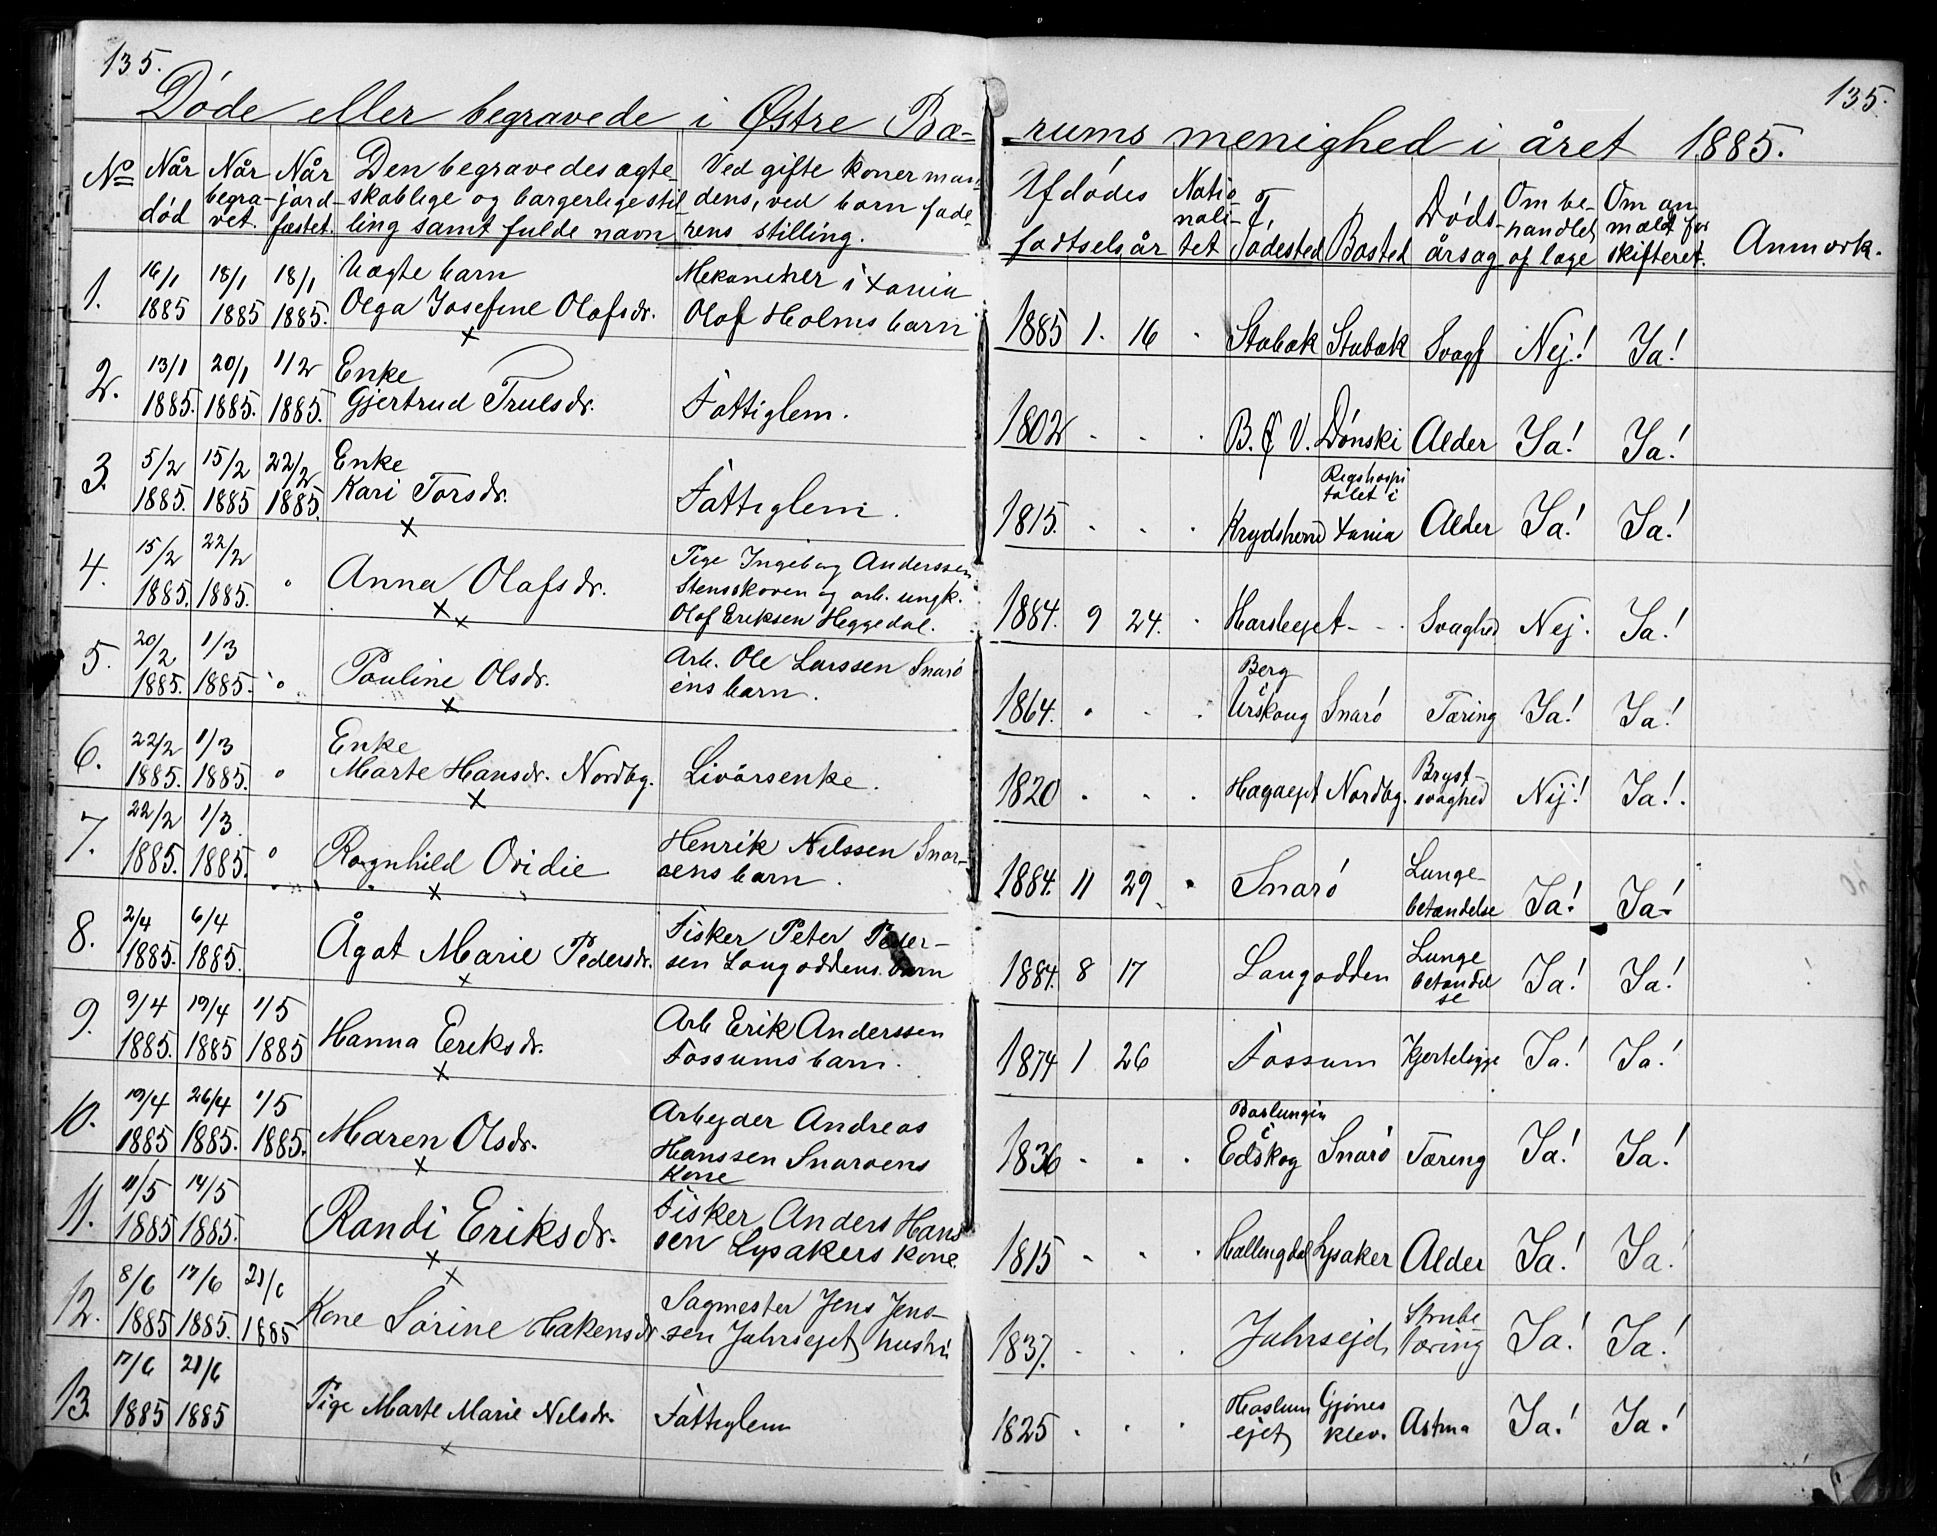 135.
135.
Døde eller begravede i Østre Bæ-
rums menighed i året 1885.
No Når død
Når begra-vet.
Når jord-fæstet.
Den begravedes ægte-
skablige og borgerlige stil-
ling samt fulde navn
Ved gifte koner man-
dens, ved barn fade-
rens stilling.
Afdødes
fødtselsår
Natio-
nali-
tet
Fødested
Bosted
Døds-
årsag
Om be-
handlet
af læge
Om an
mældt for
skifteret.
Anmærk.
1. 16/1 1885 18/1 1885 18/1 1885.
Uægte barn
Olga Josefine Olafsdr.
Mekaniker i Xania
Olaf Holms barn
1885 1. 16 Stabæk Stabæk Svagh Nej! Ja!
2. 13/1 1885. 20/1 1885. 1/2 1885.
Enke
Gjertrud Trulsdr.
Fattiglem.
1802 B. & V. Dønski Alder Ja! Ja!
3. 5/2 1885. 15/2 1885 22/2 1885.
Enke
Kari Torsdr.
Fattiglem.
1815. Krydsherred Rigshospi
talet i
Xania Alder Ja! Ja!
4. 15/2 1885. 22/2 1885. "
Anna Olafsdr.
Pige Ingeborg Anderssen
Stensskoven og arb. ungk.
Olaf Eriksen Heggedal.
1884. 9 24. Harslejet - - Svaghed Nej. Ja!
5. 20/2 1885. 1/3 1885. "
Pauline Olsdr.
Arb. Ole Larssen Snarø
ens barn.
1864. Berg
i
Urskoug Snarø Tæring Ja! Ja!
6. 22/2 1885. 1/3 1885. "
Enke
Marte Hansdr. Nordbg.
Livørsenke.
1820 Hagaejet Nordbg. Bryst-
svaghed Nij! Ja!.
7. 22/2 1885. 1/3 1885. "
Ragnhild Ovidie
Henrik Nilssen Snar-
øens barn.
1884. 11 29. Snarø Lunge-
betændelse Ja! Ja!
8. 2/4 1885. 6/4 1885.
Ågot Marie Pedersdr.
Fisker Peter Peder-
sen Langoddens barn
1884. 8 17 Langodden Lunge
betændel
se Ja! Ja!
9. 9/4 1885. 19/4 1885 1/5 1885
Hanna Eriksdr.
Arb Erik Anderssen
Fossums barn.
1874 1 26 Fossum Kjertelsyge Ja! Ja!
10. 19/4 1885 26/4 1885. 1/5 1885.
Maren Olsdr.
Arbejder Andreas
Hanssen Snarøens
Kone
1836 i
Edskog Snarø Tæring Ja! Ja!
11. 11/5 1885 14/5 1885.
Randi Eriksdr.
Fisker Anders Hans
sen Lysakers kone
1815 Hallingdal Lysaker Alder Ja! Ja!
12. 8/6 1885 17/6 1885. 21/6 1885
Kone Sørine Hakensdr
Sagmester Jens Jens-
sen Jahrsejet hustru
1837. Jahrsejet Strube
tæring Ja! Ja!
13. 17/6 1885 21/6 1885
Pige Marte Marie Nelsdr.
Fattiglem
1825 Haslum
ejet Gjønes
klev. Astma Ja! Ja!